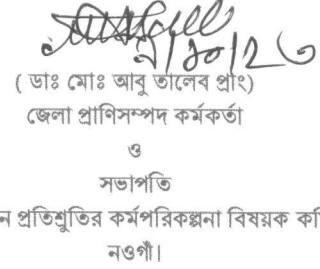 ৯/১০/২৩
( ডাঃ মোঃ আবু তালেব প্রাং)
জেলা প্রাণিসম্পদ কর্মকর্তা
ও
সভাপতি
ন প্রতিশ্রুতির কর্মপরিকল্পনা বিষয়ক কমি
নওগাঁ।